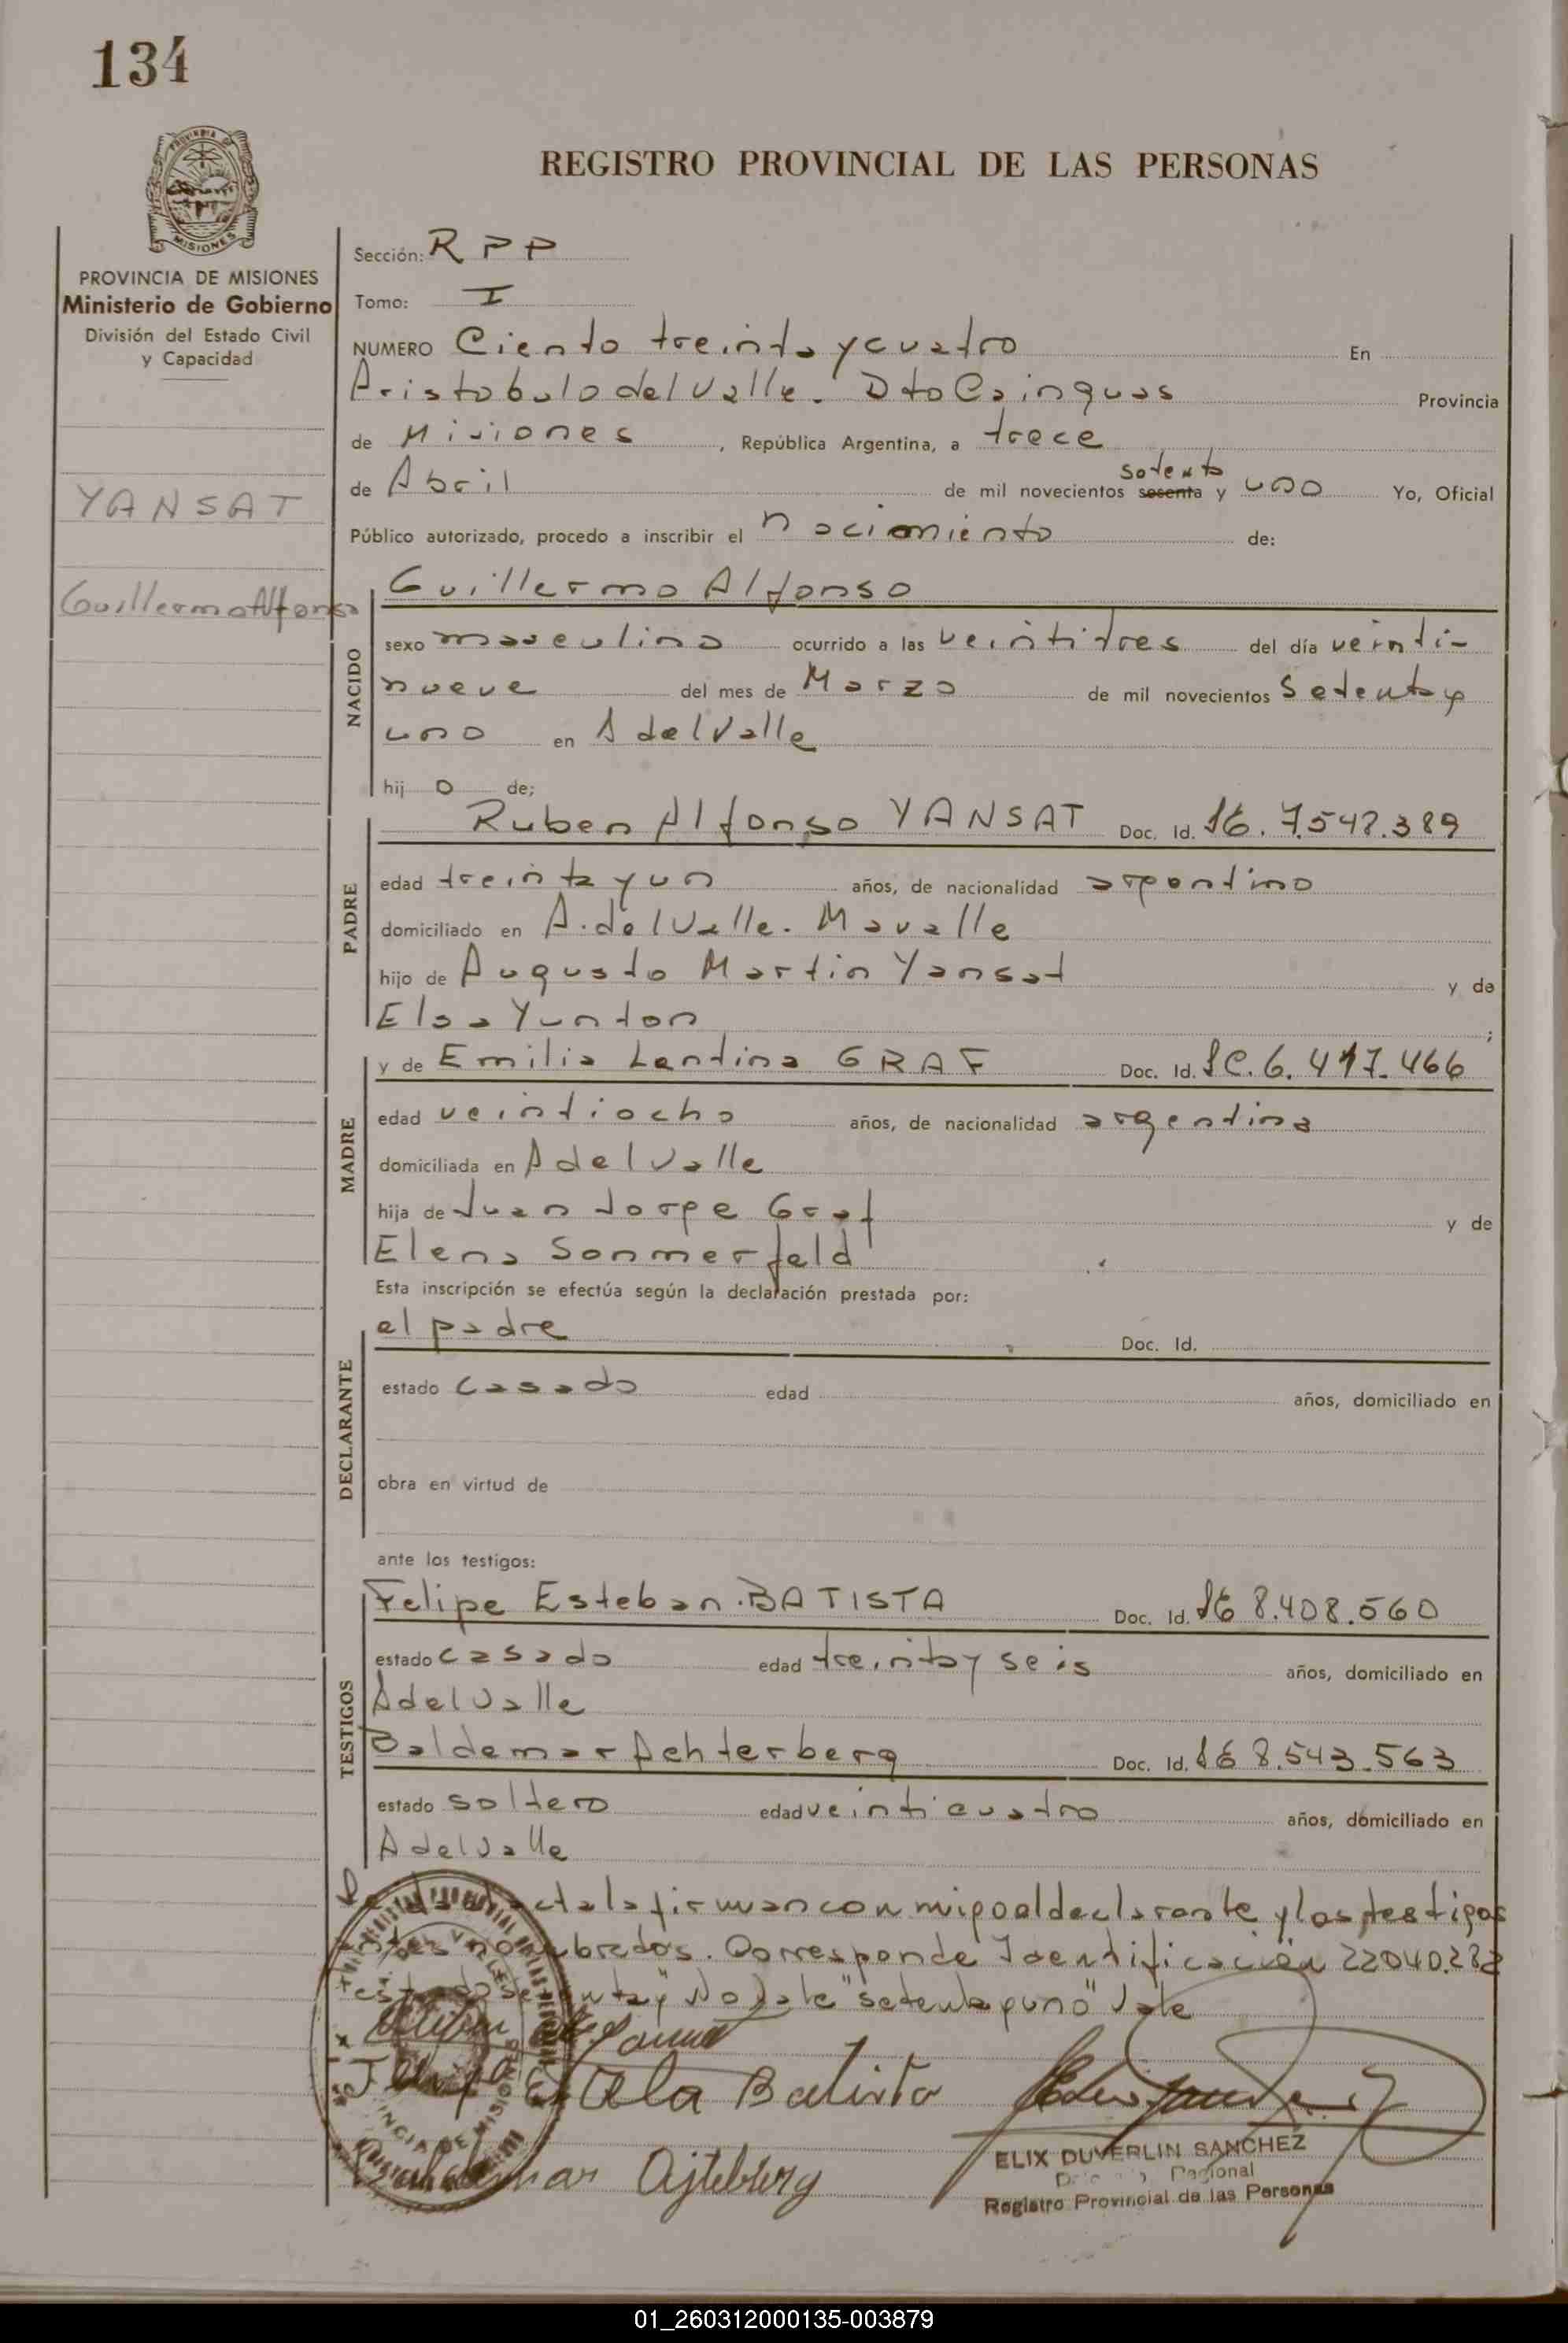 134
REGISTRO PROVINCIAL DE LAS PERSONAS
PROVINCIA DE
MISIONES
PROVINCIA DE MISIONES
Ministerio de Gobierno
División del Estado Civil
y Capacidad
YANSAT
Guillermo Alfonso
Sección: R P P
Tomo: I
NUMERO Ciento treinta y cuatro En
Aristobulo del Valle. Dto Cainguas Provincia
de Misiones, República Argentina, a trece
setenta
de Abril de mil novecientos sesenta y uno Yo, Oficial
Público autorizado, procedo a inscribir el nacimiento de:
NACIDO
Guillermo Alfonso
sexo masculino ocurrido a las veintitres del día veinti-
nueve del mes de Marzo de mil novecientos Setenta y
uno en A del Valle
hij o de;
PADRE
Ruben Alfonso YANSAT Doc. Id. 7.542.389
edad treinta y un años, de nacionalidad argentino
domiciliado en A. del Valle. Mavalle
hijo de Augusto Martin Yansat y de
Elsa Yunton ;
MADRE
y de Emilia Lentina GRAF Doc. Id. 6.417.466
edad veintiocho años, de nacionalidad argentina
domiciliada en A del Valle
hija de Juan Jorge Graf y de
Elena Sonmerfeld
Esta inscripción se efectúa según la declaración prestada por:
DECLARANTE
el padre Doc. Id.
estado casado edad años, domiciliado en
obra en virtud de
ante los testigos:
TESTIGOS
Felipe Esteban. BATISTA Doc. Id. 8.408.560
estado casado edad treinta y seis años, domiciliado en
A del Valle
Baldemar Achterberg Doc. Id. 8.543.563
estado soltero edad veinticuatro años, domiciliado en
A del Valle
acta la firman conmigo el declarante y los testigos
nombrados. Corresponde Identificación 22040.282
No Vale "setenta y uno" Vale
Batista
ELIX DUVERLIN SANCHEZ
Regional
Registro Provincial de las Personas
01_260312000135-003879